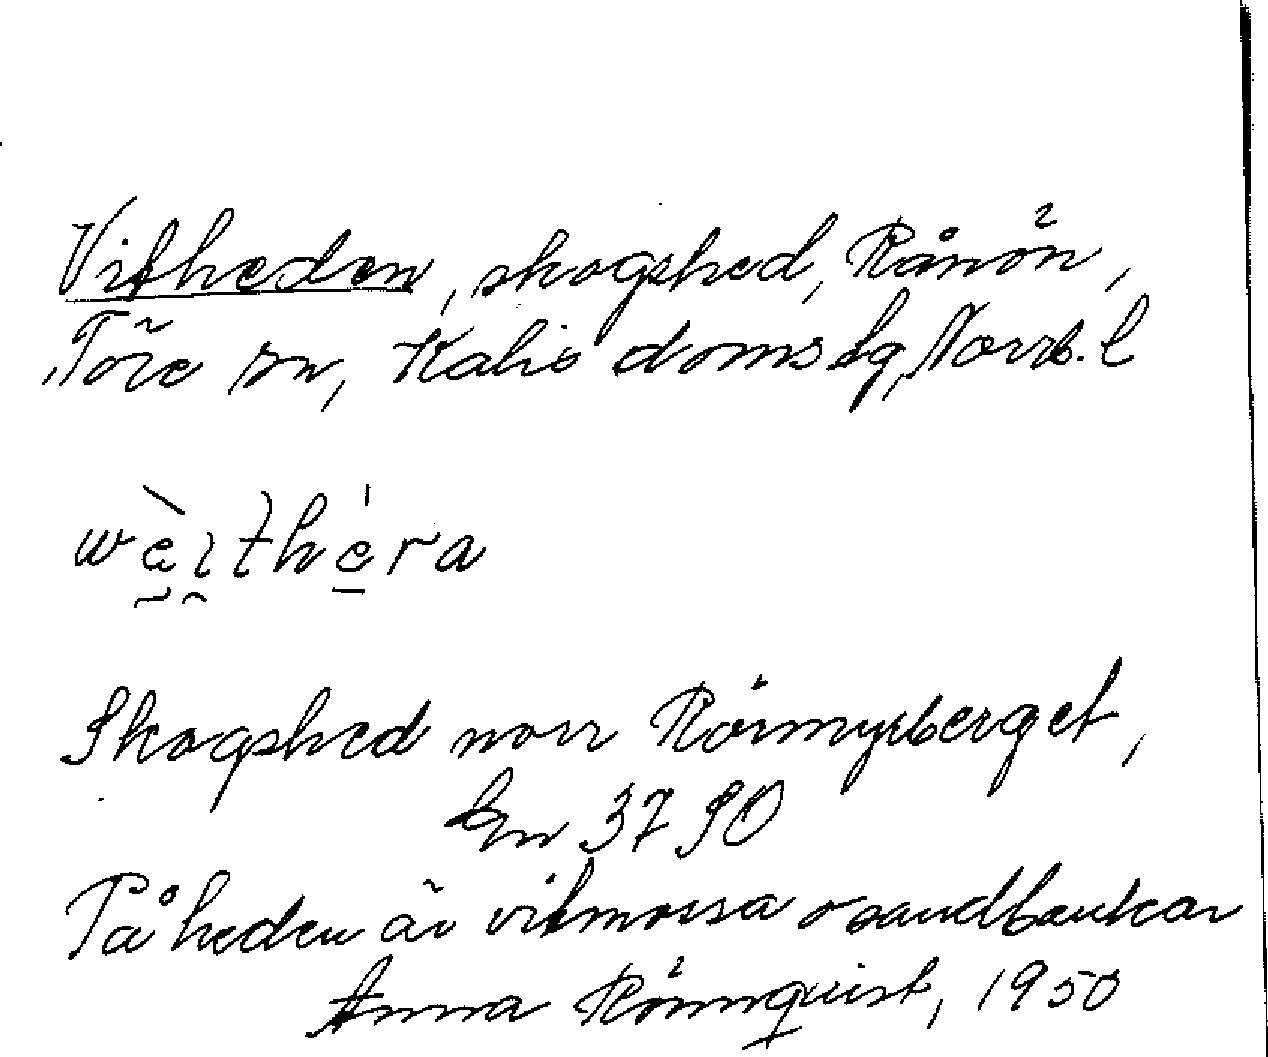 Vitheden, skogshed, Rånön,
Töre sn, Kalix domsg, Norrb. l
wèithéra
Skogshed norr Rörmyrberget,
km 37 90
På heden är vitmossa o sandbankar
Anna Rönnquist, 1950